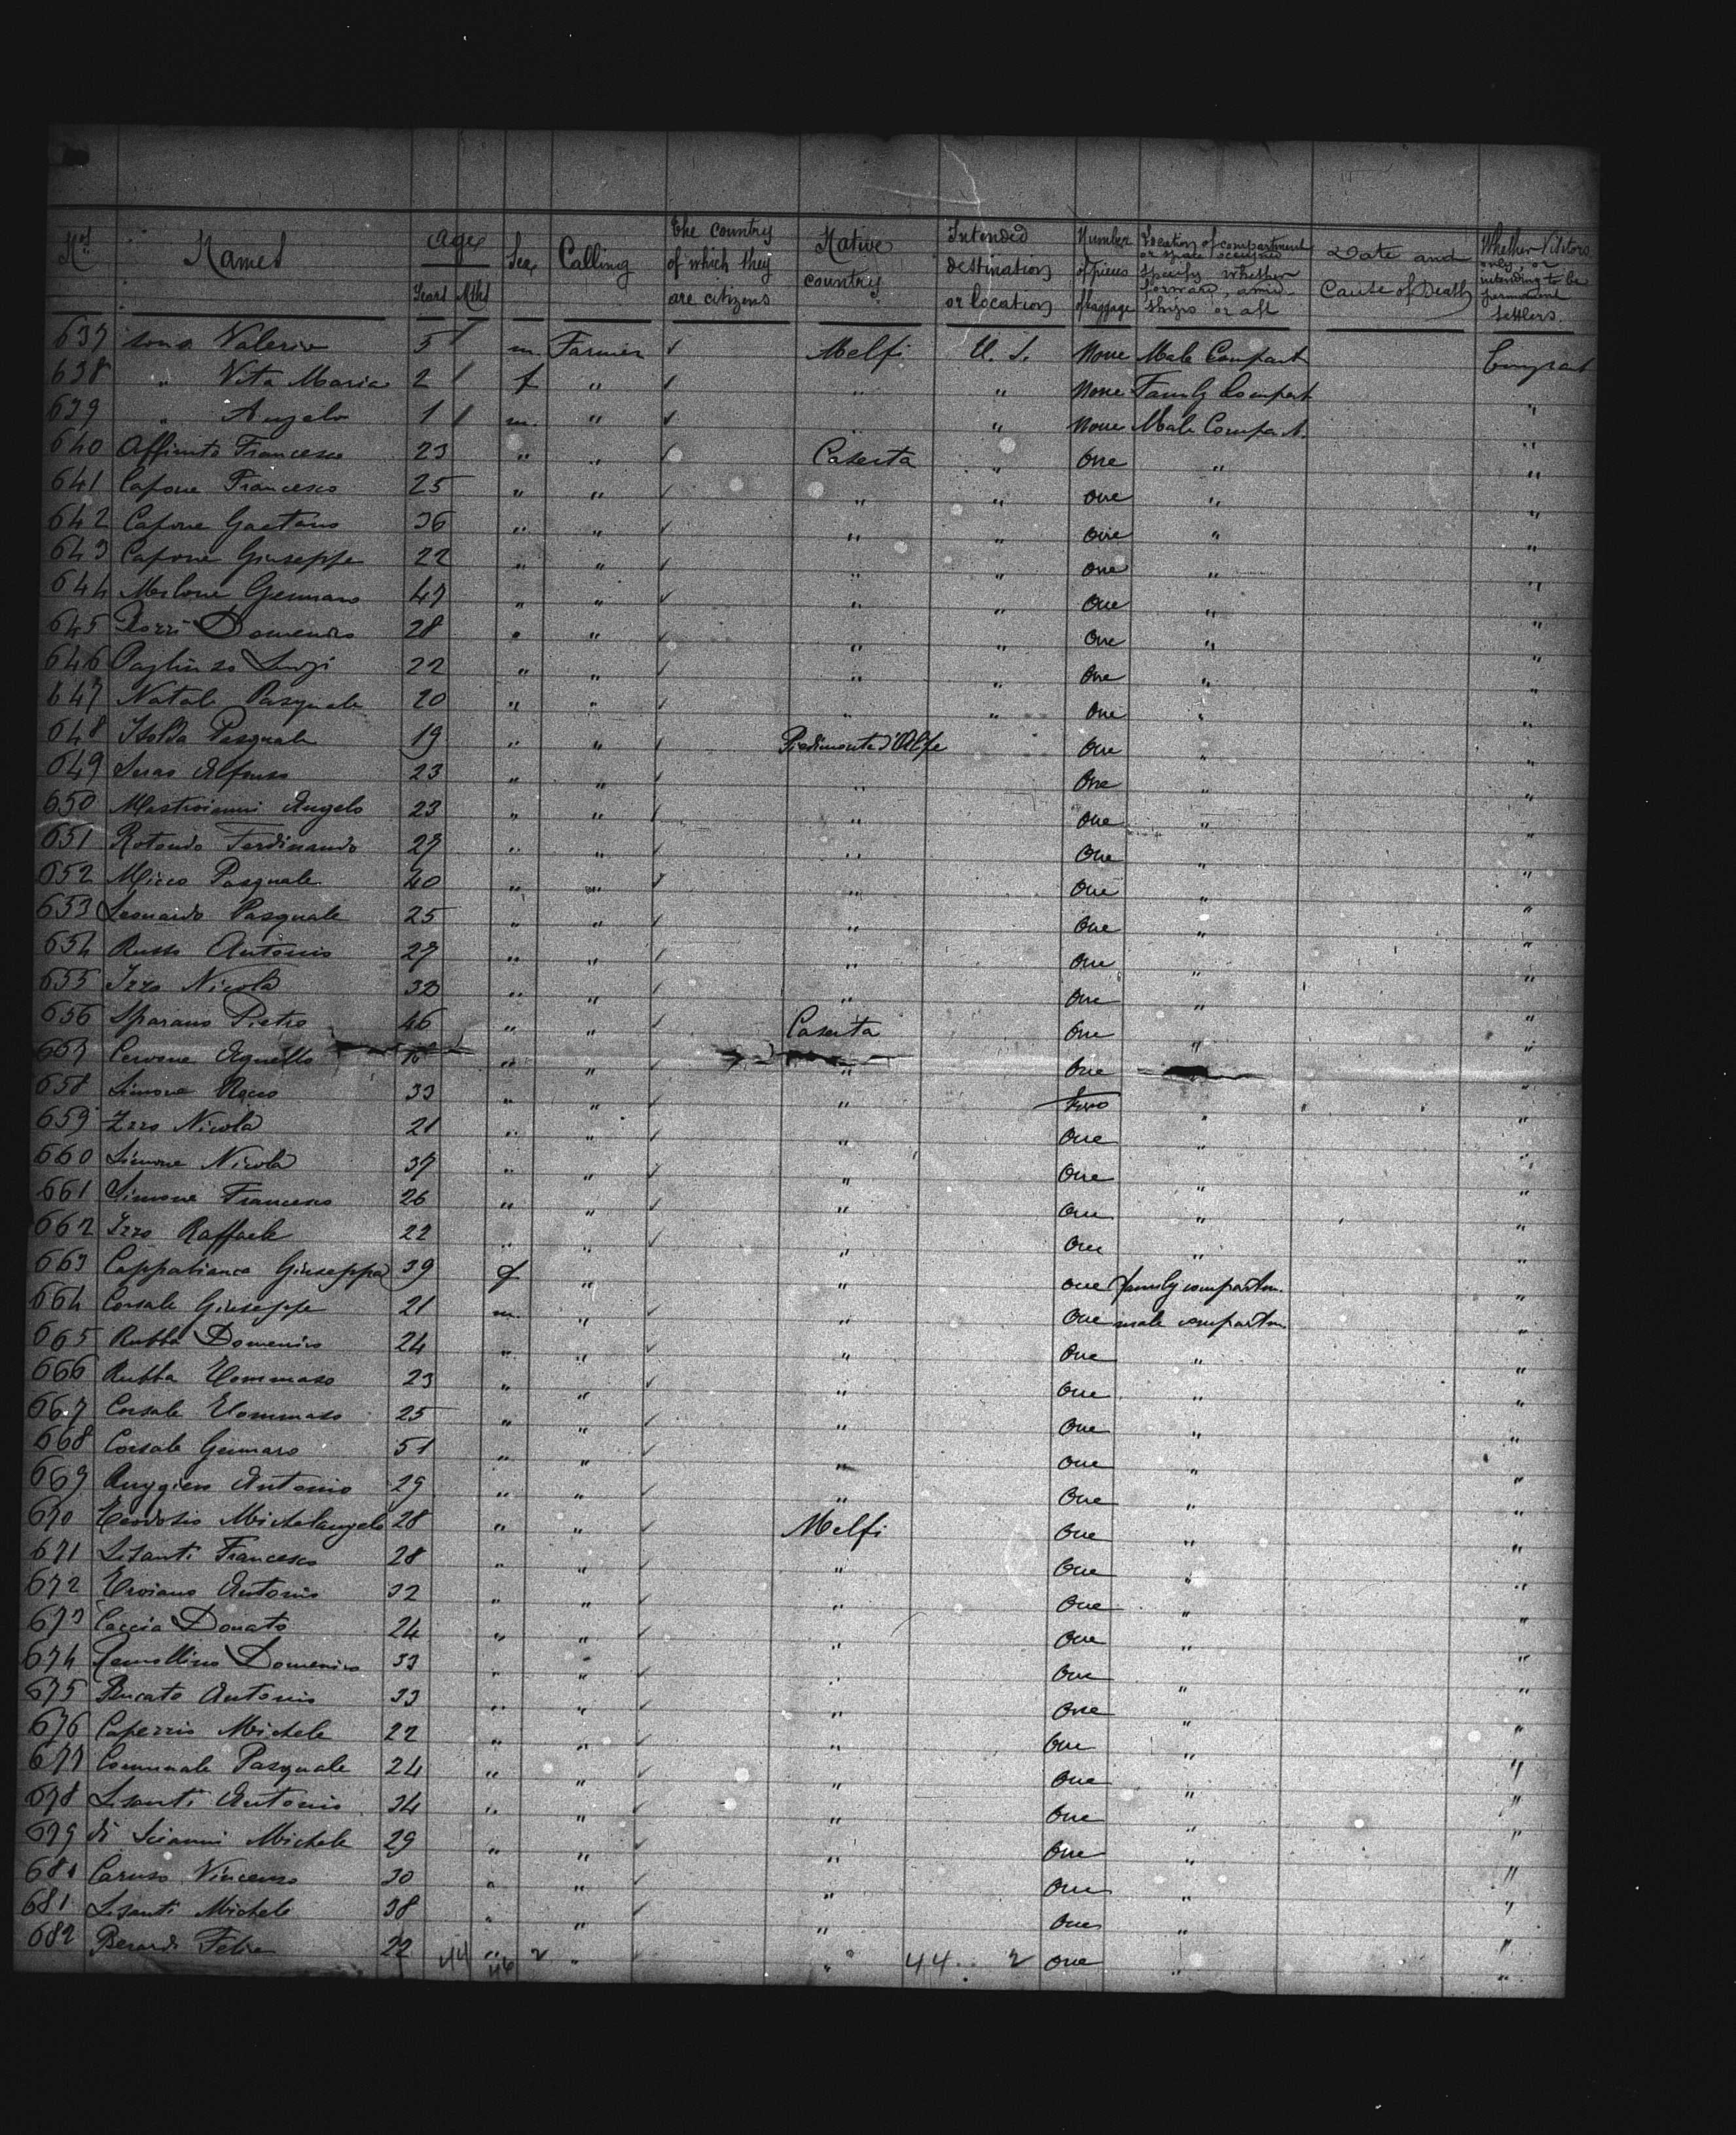 Nos Names Age Years Mths Sex Calling The country of which they are citizens Native country Intended destination or location Number of pieces of baggage Location of compartment or space occupied specify whether forward, amid ships or aft Date and Cause of Death Whether Visitors only, or intending to be permanent settlers.
637 sons Valerio 5 m. Farmer ✓ Melfi U. S. None Male Compart
638 " Vita Maria 2 f " ✓ " " None Family Compart "
639 " Angelo 1 m. " ✓ " " None Male Compart. "
640 Affinito Francesco 23 " " ✓ Caserta " One " "
641 Capone Francesco 25 " " ✓ " " One " "
642 Capone Gaetano 36 " " ✓ " " One " "
643 Capone Giuseppe 22 " " ✓ " " One " "
644 Merlone Gennaro 47 " " ✓ " " One " "
645 Domenico 28 " " ✓ " " One " "
646 Luigi 22 " " ✓ " " One " "
647 Natale Pasquale 20 " " ✓ " " One " "
648 Pasquale 19 " " ✓ Piedimonte d'Alife One " "
649 Alfonso 23 " " ✓ " One " "
650 Mastroianni Angelo 23 " " ✓ " One " "
651 Rotondo Ferdinando 27 " " ✓ " One " "
652 Micco Pasquale 40 " " ✓ " One " "
653 Leonardo Pasquale 25 " " ✓ " One " "
654 Russo Antonio 27 " " ✓ " One " "
655 Izzo Nicola " " ✓ " One " "
656 Sparano Pietro 46 " " ✓ Caserta One " "
657 Cervone Agnello " " ✓ " One "
658 Simone Rocco 33 " " ✓ " Two " "
659 Izzo Nicola 21 " " ✓ " One " "
660 Simone Nicola 37 " " ✓ " One " "
661 Simone Francesco 26 " " ✓ " One " "
662 Izzo Raffaele 22 " " ✓ " One " "
663 Cappabianca Giuseppa 39 f " " one family compartm. "
664 Corsale Giuseppe 21 m. " ✓ " One male compartm. "
665 Rubba Domenico 24 " " ✓ " One " "
666 Rubba Tommaso 23 " " ✓ " One " "
667 Corsale Tommaso 25 " " ✓ " One " "
668 Corsale Gennaro 51 " " ✓ " One " "
669 Ruggiero Antonio 29 " " ✓ " One " "
670 Teodosio Michelangelo 28 " " ✓ Melfi One " "
671 Lisanti Francesco 28 " " ✓ " One " "
672 Troiano Antonio 32 " " ✓ " One " "
673 Caccia Donato 24 " " ✓ " One " "
674 Domenico 33 " " ✓ " One " "
675 Bucato Antonio 33 " " ✓ " One " "
676 Capezzio Michele 22 " " ✓ " One " "
677 Comunale Pasquale 24 " " ✓ " One " "
678 Lisanti Antonio 34 " " ✓ " One " "
679 di Michele 29 " " ✓ " One " "
680 Caruso Vincenzo 30 " " ✓ " One " "
681 Lisanti Michele 38 " " ✓ " One " "
682 Berardi Felice 22 44 " 46 2 " ✓ " 44 2 One " "